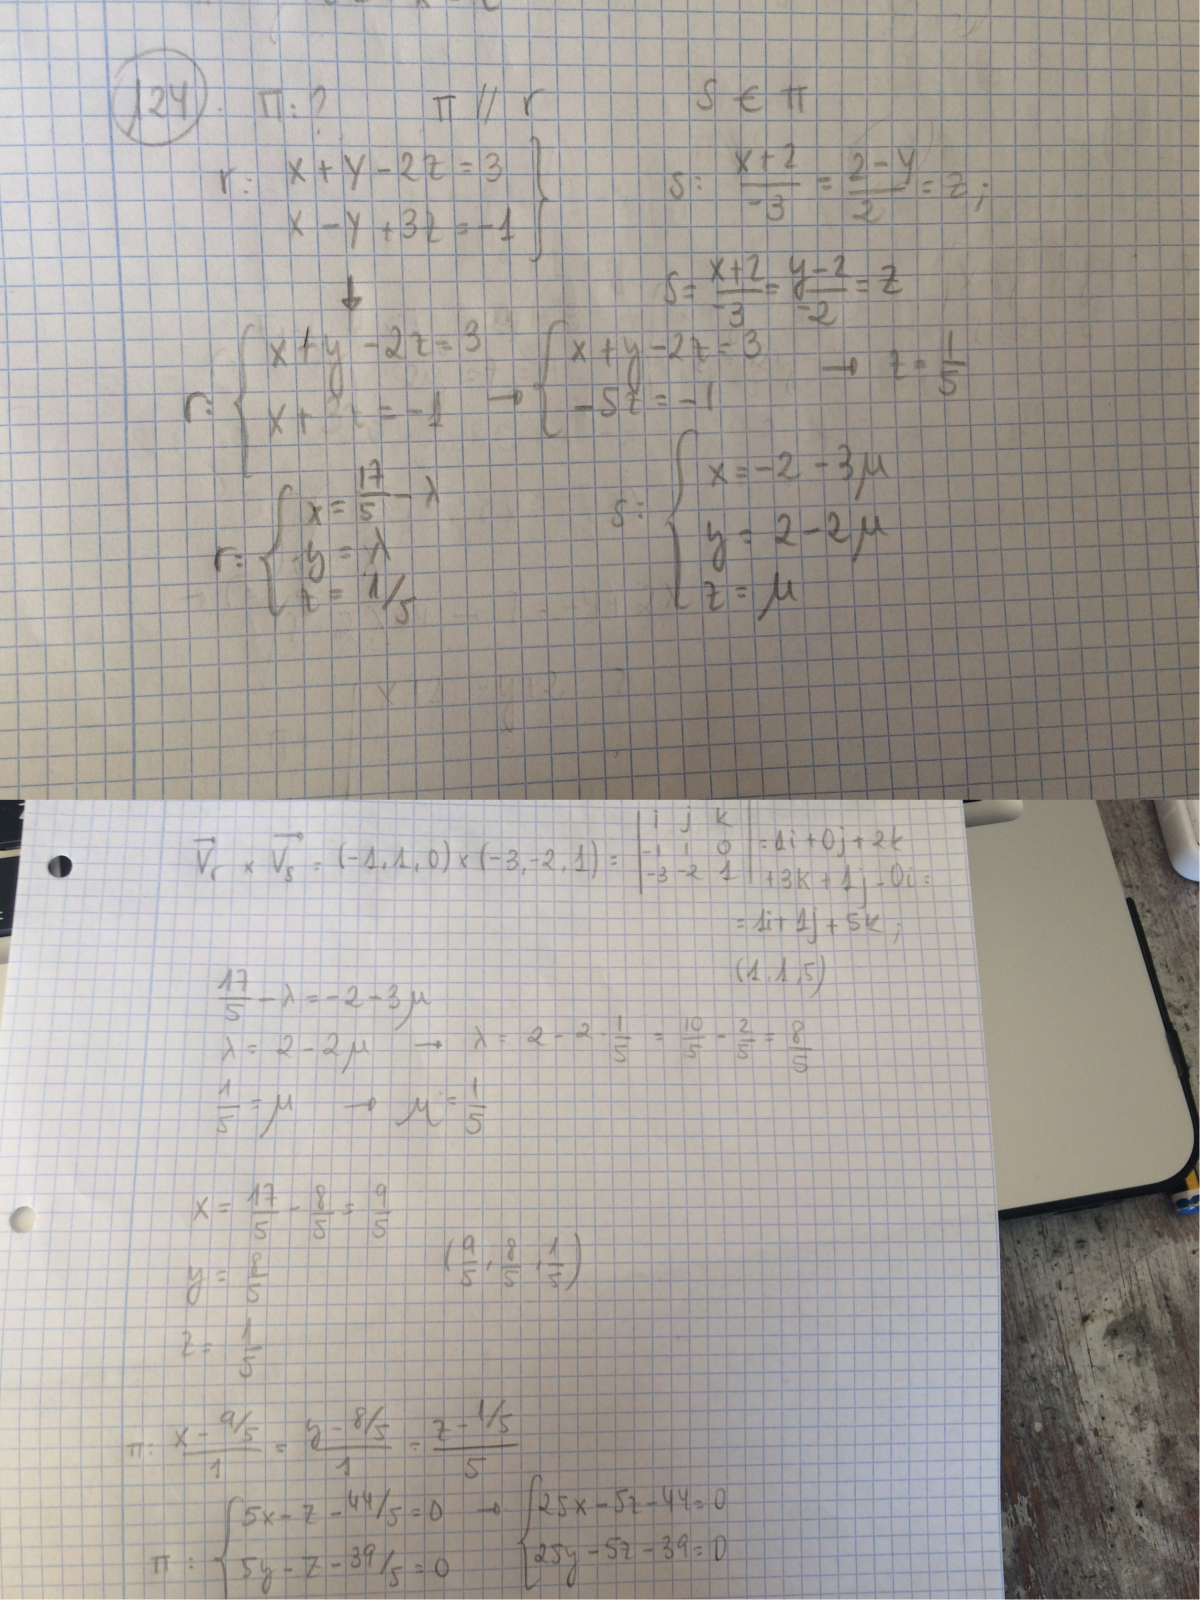 124. π: ? π // r s ∈ π
r: x + y - 2z = 3
x - y + 3z = -1 }
s: (x+2)/-3 = (2-y)/2 = z;
↓
s = (x+2)/-3 = (y-2)/-2 = z
r: { x + y - 2z = 3 → { x + y - 2z = 3 → z = 1/5
x + z = -1 -5z = -1
r: { x = 17/5 - λ
y = λ
z = 1/5
s: { x = -2 - 3μ
y = 2 - 2μ
z = μ
V⃗r × V⃗s = (-1, 1, 0) × (-3, -2, 1) = | i j k | = 1i + 0j + 2k
| -1 1 0 |
| -3 -2 1 | + 3k + 1j - 0i =
= 1i + 1j + 5k;
(1, 1, 5)
17/5 - λ = -2 - 3μ
λ = 2 - 2μ → λ = 2 - 2 · 1/5 = 10/5 - 2/5 = 8/5
1/5 = μ → μ = 1/5
x = 17/5 - 8/5 = 9/5
y = 8/5 (9/5, 8/5, 1/5)
z = 1/5
π: (x - 9/5)/1 = (y - 8/5)/1 = (z - 1/5)/5
π: { 5x - z - 44/5 = 0 → { 25x - 5z - 44 = 0
5y - z - 39/5 = 0 25y - 5z - 39 = 0